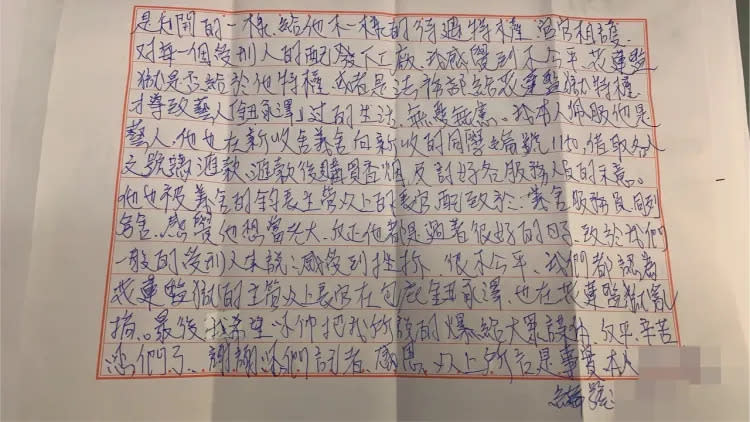 是包開的一樣.給他不一樣的待遇特權.官官相護.
對每一個受刑人的配發下工廠.我感覺到不公平.花蓮監
獄是否給於他特權.或者是法務部給花蓮監獄特權
才導致藝人「鈕承澤」过的生活.無憂無慮.我本人佩服他是
藝人.他也在新收舍義舍向新收的同學編號.借取各人
文號碼滙款.滙款後購買香烟.反討好各服務人員的
他也被義舍的主管以上的長官.配致於:義舍服務員.同到
舍.感覺他想當老大.反正他都是過著很好的日子.致於我們
一般的受刑人來說:感受到挫折.很不公平.我們都認為
花蓮監獄的主管以上長官在包庇鈕承澤.也在花蓮監獄亂
搞.最後我希望你们把我所說的爆給大眾公平.辛苦
您們了.謝謝你們記者.感恩.以上所言是事實本人
編號: